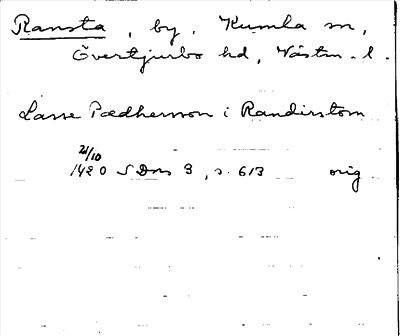 Ransta, by, Kumla sn,
Övertjurbo hd, Västm. l.
Lasse Pædhersson i Randirstom
21/10
1420 SDns 3, s. 613 orig